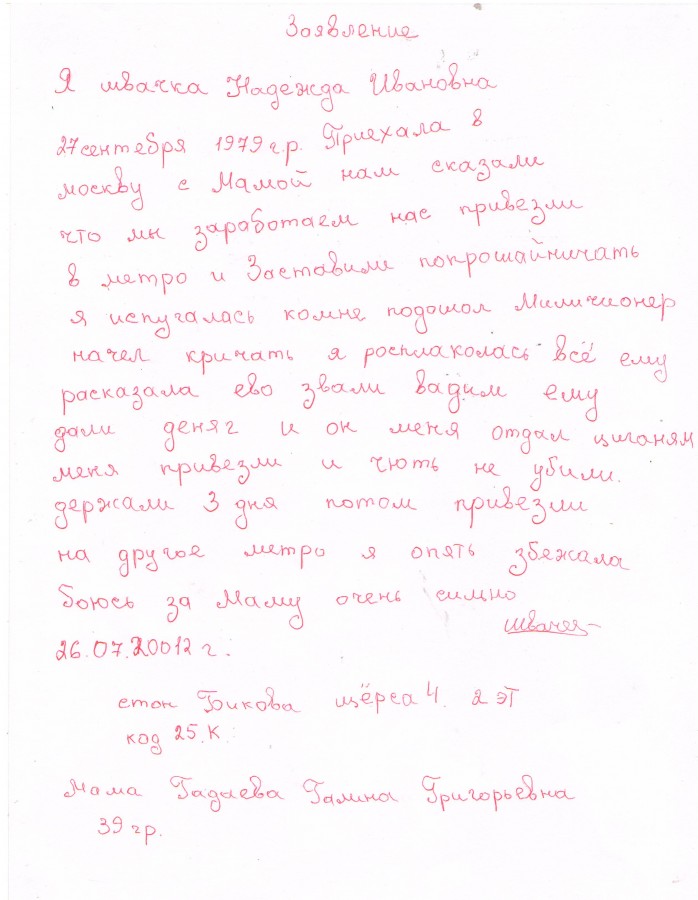 Заявление
Я швачка Надежда Ивановна
27 сентября 1979 г.р. Приехала в
москву с Мамой нам сказали
что мы заработаем нас привезли
в метро и Заставили попрошайничать
я испугалась комне подошол Миличионер
начел кричать я росплаколась всё ему
расказала ево звали вадим ему
дали деняг и он меня отдал циганям
меня привезли и чють не убили.
держали 3 дня потом привезли
на другое метро я опять збежала
боюсь за Маму очень сильно
26.07.20012 г.
стон Бикова щёрса 4. 2 эт
код 25.К.
Мама Гадаева Галина Григорьевна
39 гр.